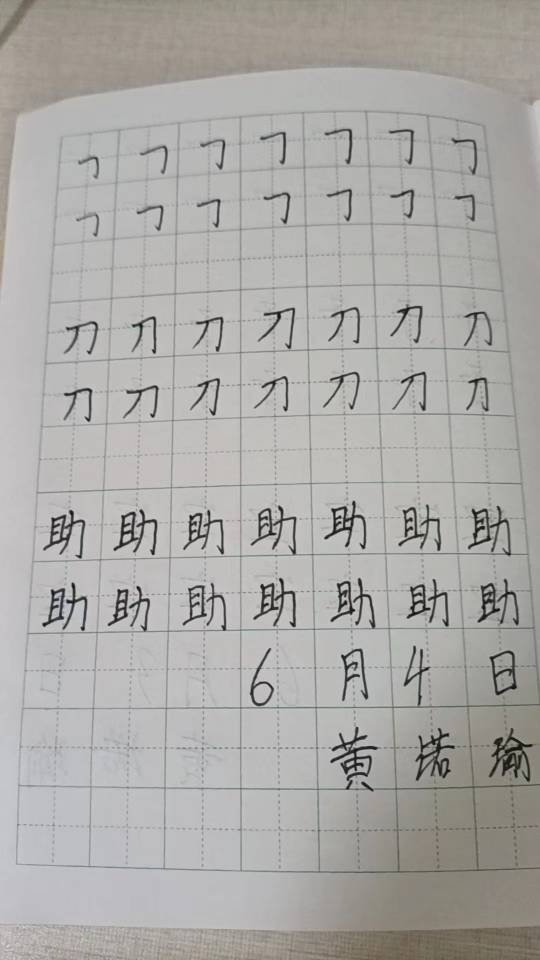 ㇆㇆㇆㇆㇆㇆㇆
㇆㇆㇆㇆㇆㇆㇆
刀刀刀刀刀刀刀
刀刀刀刀刀刀刀
助助助助助助助
助助助助助助助
6月4日
黄诺瑜